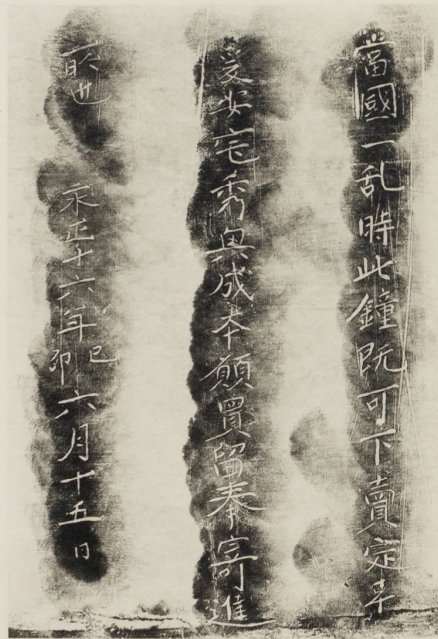 當國一乱時此鐘既可下賣定幸
安宅秀興成本願買留奉寄進
所也　永正十六年己卯六月十五日